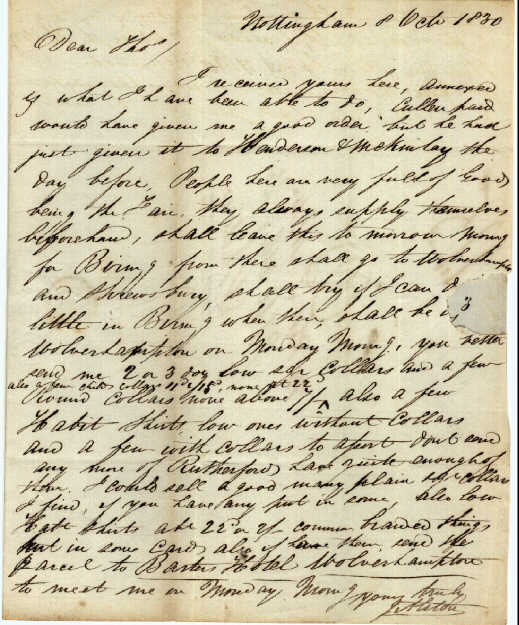 Nottingham 8 Oct 1830
Dear Thos/
I received yours here, annexed
is what I have been able to do, Cullen said
would have given me a good order but he had
just given it to Henderson & McKinlay the
day before, People here are very full of Goods
being the Fair, they always supply themselves
beforehand, shall leave this to morrow Morng
for Birmg from there shall go to Wolverhampton
and Shrewsbury, shall try if I can
little in Birmg when there, shall be
3
Wolverhampton on Monday Morng, you better
send me 2 or 3 doz low Collars and a few
also a few collars none at 22
Round Collars none above 7/ also a few
Habit Shirts low ones without Collars
and a few with collars to dont send
any more of Rutherford have quite enough of
them, I could sell a good many plain collars
I find, if you have any put in some also low
Habt Shirts a 22 or 2/ common braided things
put in some Cards also if have them, send the
parcel to Hotel Wolverhampton
to meet me on Monday Morng yours truly